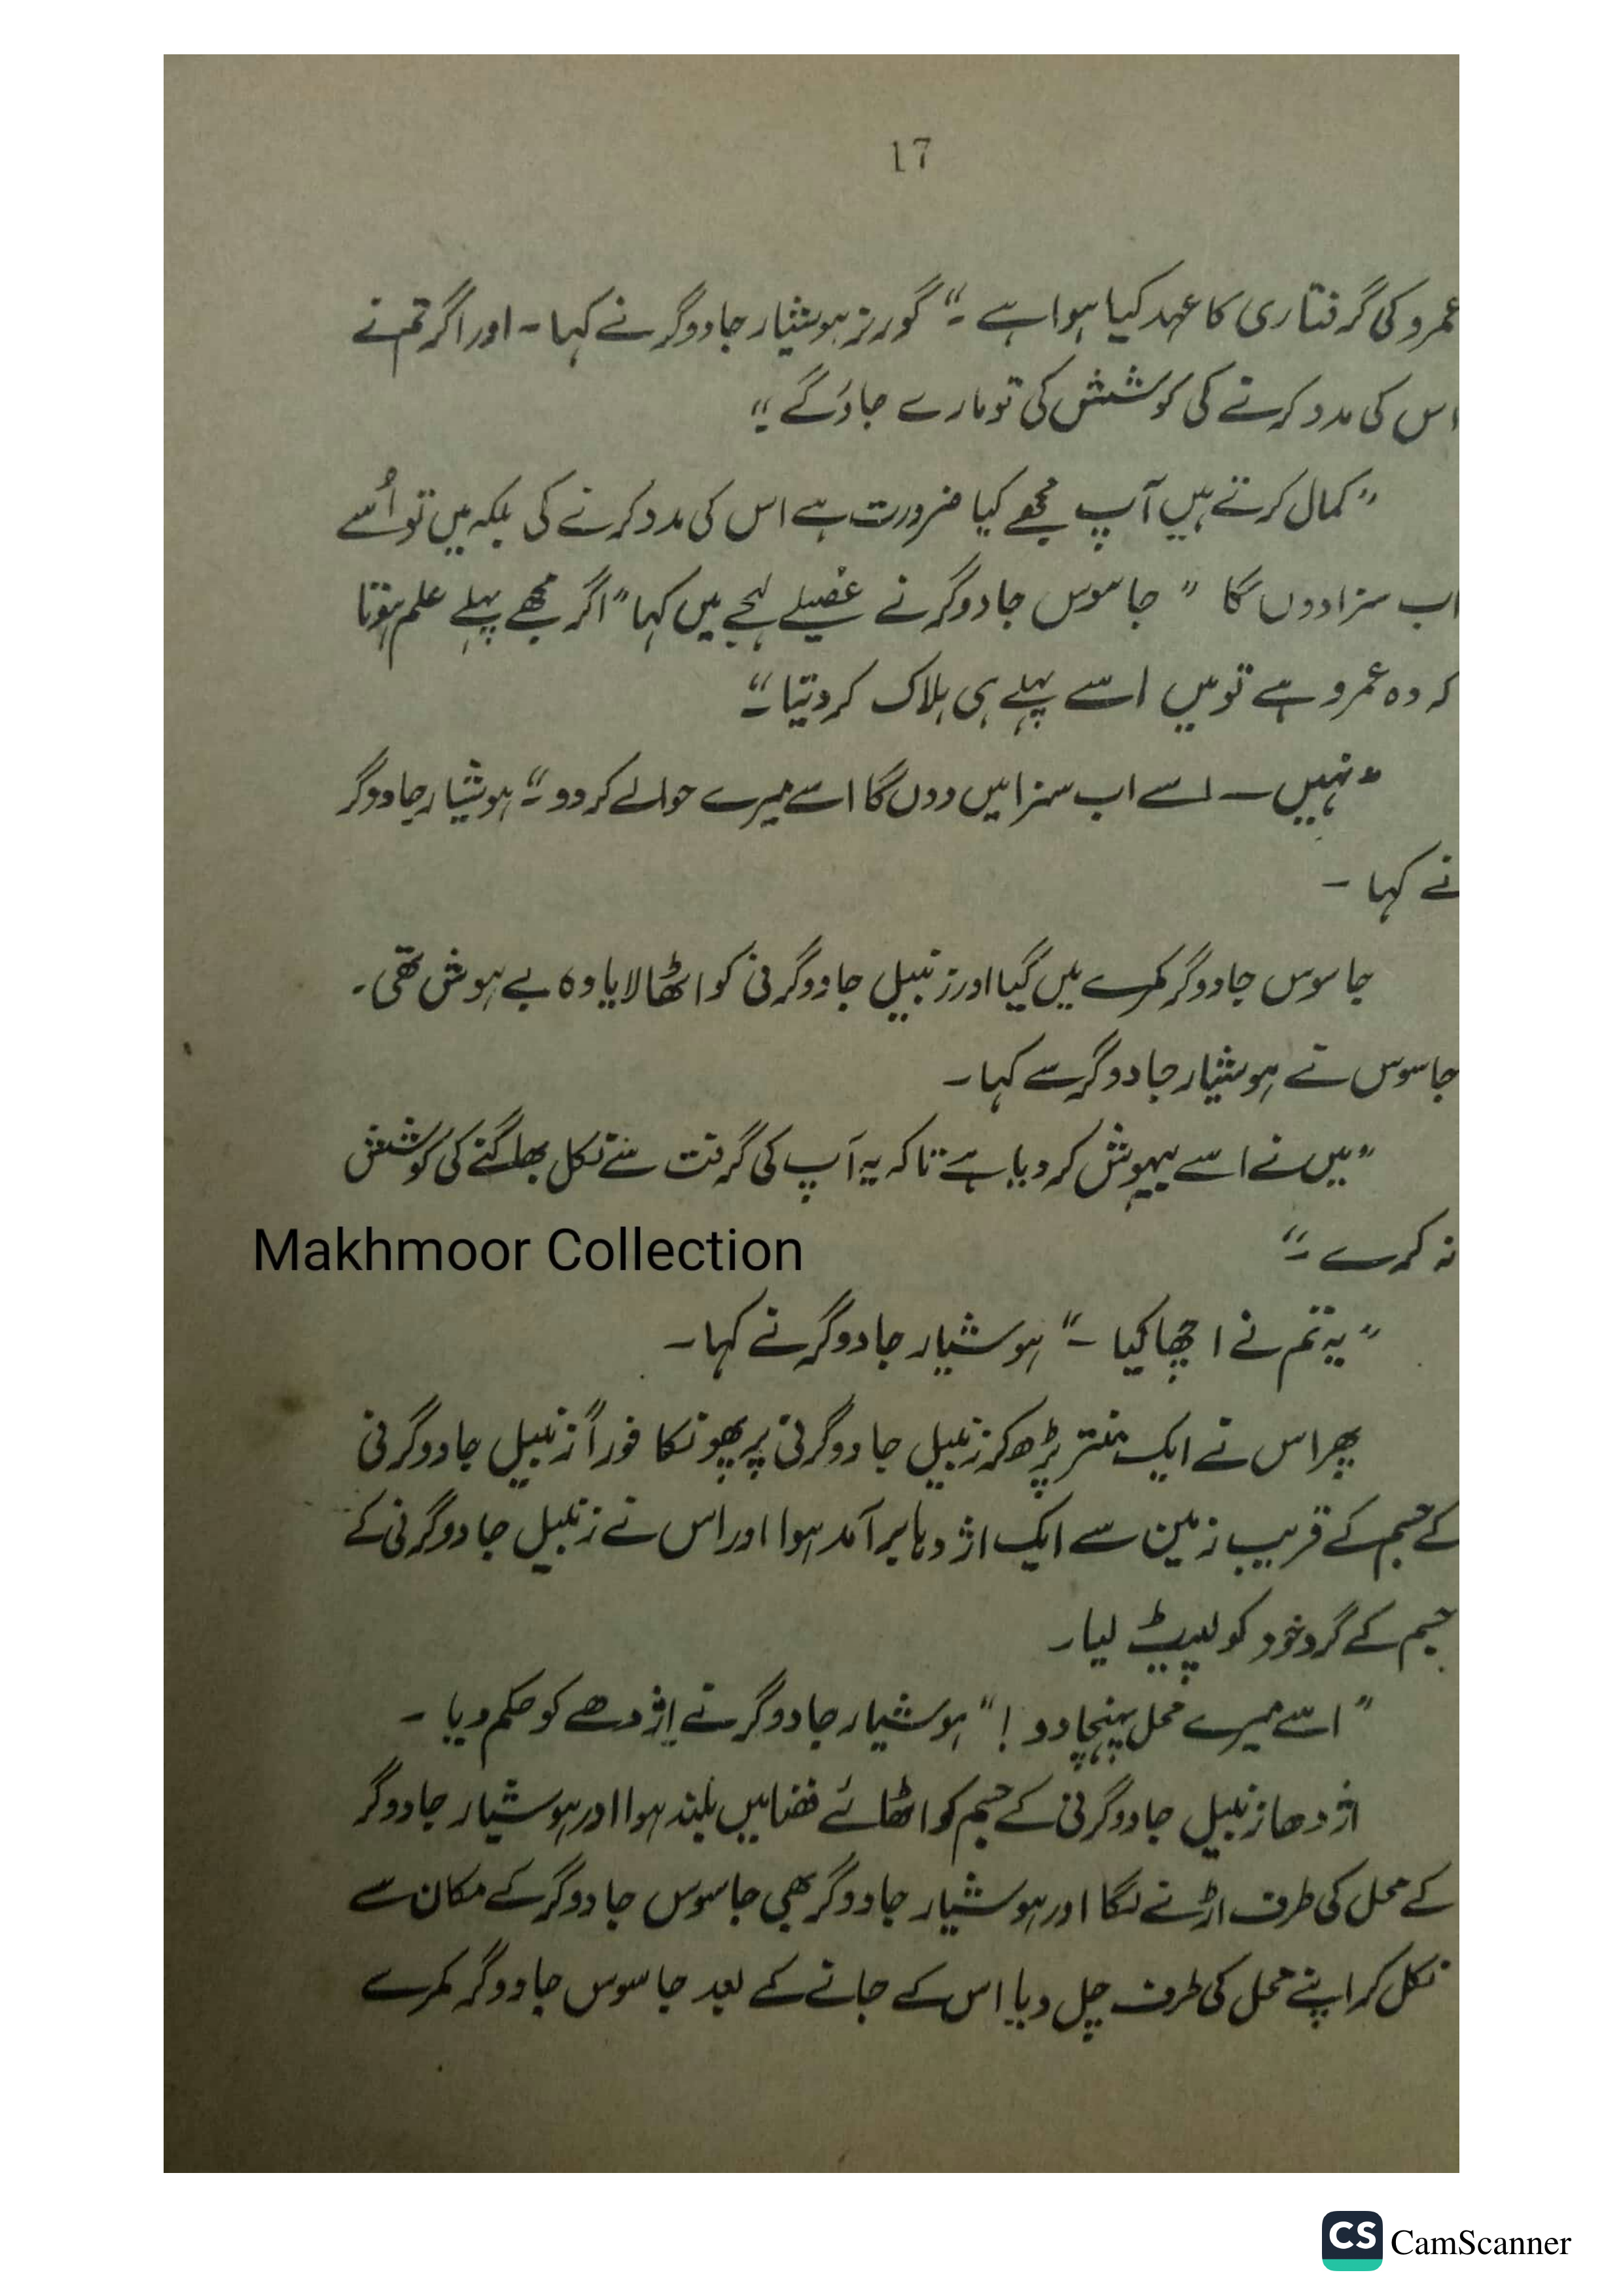 17
عمرو کی گرفتاری کا عہد کیا ہوا ہے ۔“ گورنر ہوشیار جادوگر نے کہا ۔ اور اگر تم نے
اس کی مدد کرنے کی کوشش کی تو مارے جاؤ گے ۔“
”کمال کرتے ہیں آپ مجھے کیا ضرورت ہے اس کی مدد کرنے کی بلکہ میں تو اُسے
اب سزا دوں گا “ جاسوس جادوگر نے غصیلے لہجے میں کہا ”اگر مجھے پہلے علم ہوتا
کہ وہ عمرو ہے تو میں اسے پہلے ہی ہلاک کر دیتا ۔“
”نہیں ــ اسے اب سزا میں دوں گا اسے میرے حوالے کر دو ۔“ ہوشیار جادوگر
نے کہا ۔
جاسوس جادوگر کمرے میں گیا اور زنبیل جادوگرنی کو اٹھا لایا وہ بے ہوش تھی ۔
جاسوس نے ہوشیار جادوگر سے کہا ۔
”میں نے اسے بیہوش کر دیا ہے تاکہ یہ آپ کی گرفت سے نکل بھاگنے کی کوشش
نہ کرے ۔“
Makhmoor Collection
”یہ تم نے اچھا کیا ۔“ ہوشیار جادوگر نے کہا ۔
پھر اس نے ایک منتر پڑھ کر زنبیل جادوگرنی پر پھونکا فوراً زنبیل جادوگرنی
کے جسم کے قریب زمین سے ایک اژدہا برآمد ہوا اور اس نے زنبیل جادوگرنی کے
جسم کے گرد خود کو لپیٹ لیا ۔
”اسے میرے محل پہنچا دو !“ ہوشیار جادوگر نے اژدھے کو حکم دیا ۔
اژدھا زنبیل جادوگرنی کے جسم کو اٹھائے فضا میں بلند ہوا اور ہوشیار جادوگر
کے محل کی طرف اڑنے لگا اور ہوشیار جادوگر بھی جاسوس جادوگر کے مکان سے
نکل کر اپنے محل کی طرف چل دیا اس کے جانے کے بعد جاسوس جادوگر کمرے
CS CamScanner